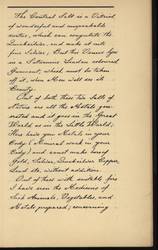 The Central Salt is a Patriot
of wonderful and unspeakable
virtue, which can coagulate the
Quicksilver, and make it into
fine Silver; But this Power lyes
in a Saturnine Leaden coloured
Garment, which must be taken
of it, when Men will see its
Beauty.
Out of both these two Salts of
Nature are all the Metals gene-
rated and it goes in the Great
World as in the Little World;
Here have you Metals in your
Body & Mineral work in your
Body; and cannot make here of
Gold, Silver, Quicksilver Copper,
Lead etc. without addition.
Out of these with meably fire
I have seen the Medicines of
such Animals, Vegetables, and
Metals prepared, concerning